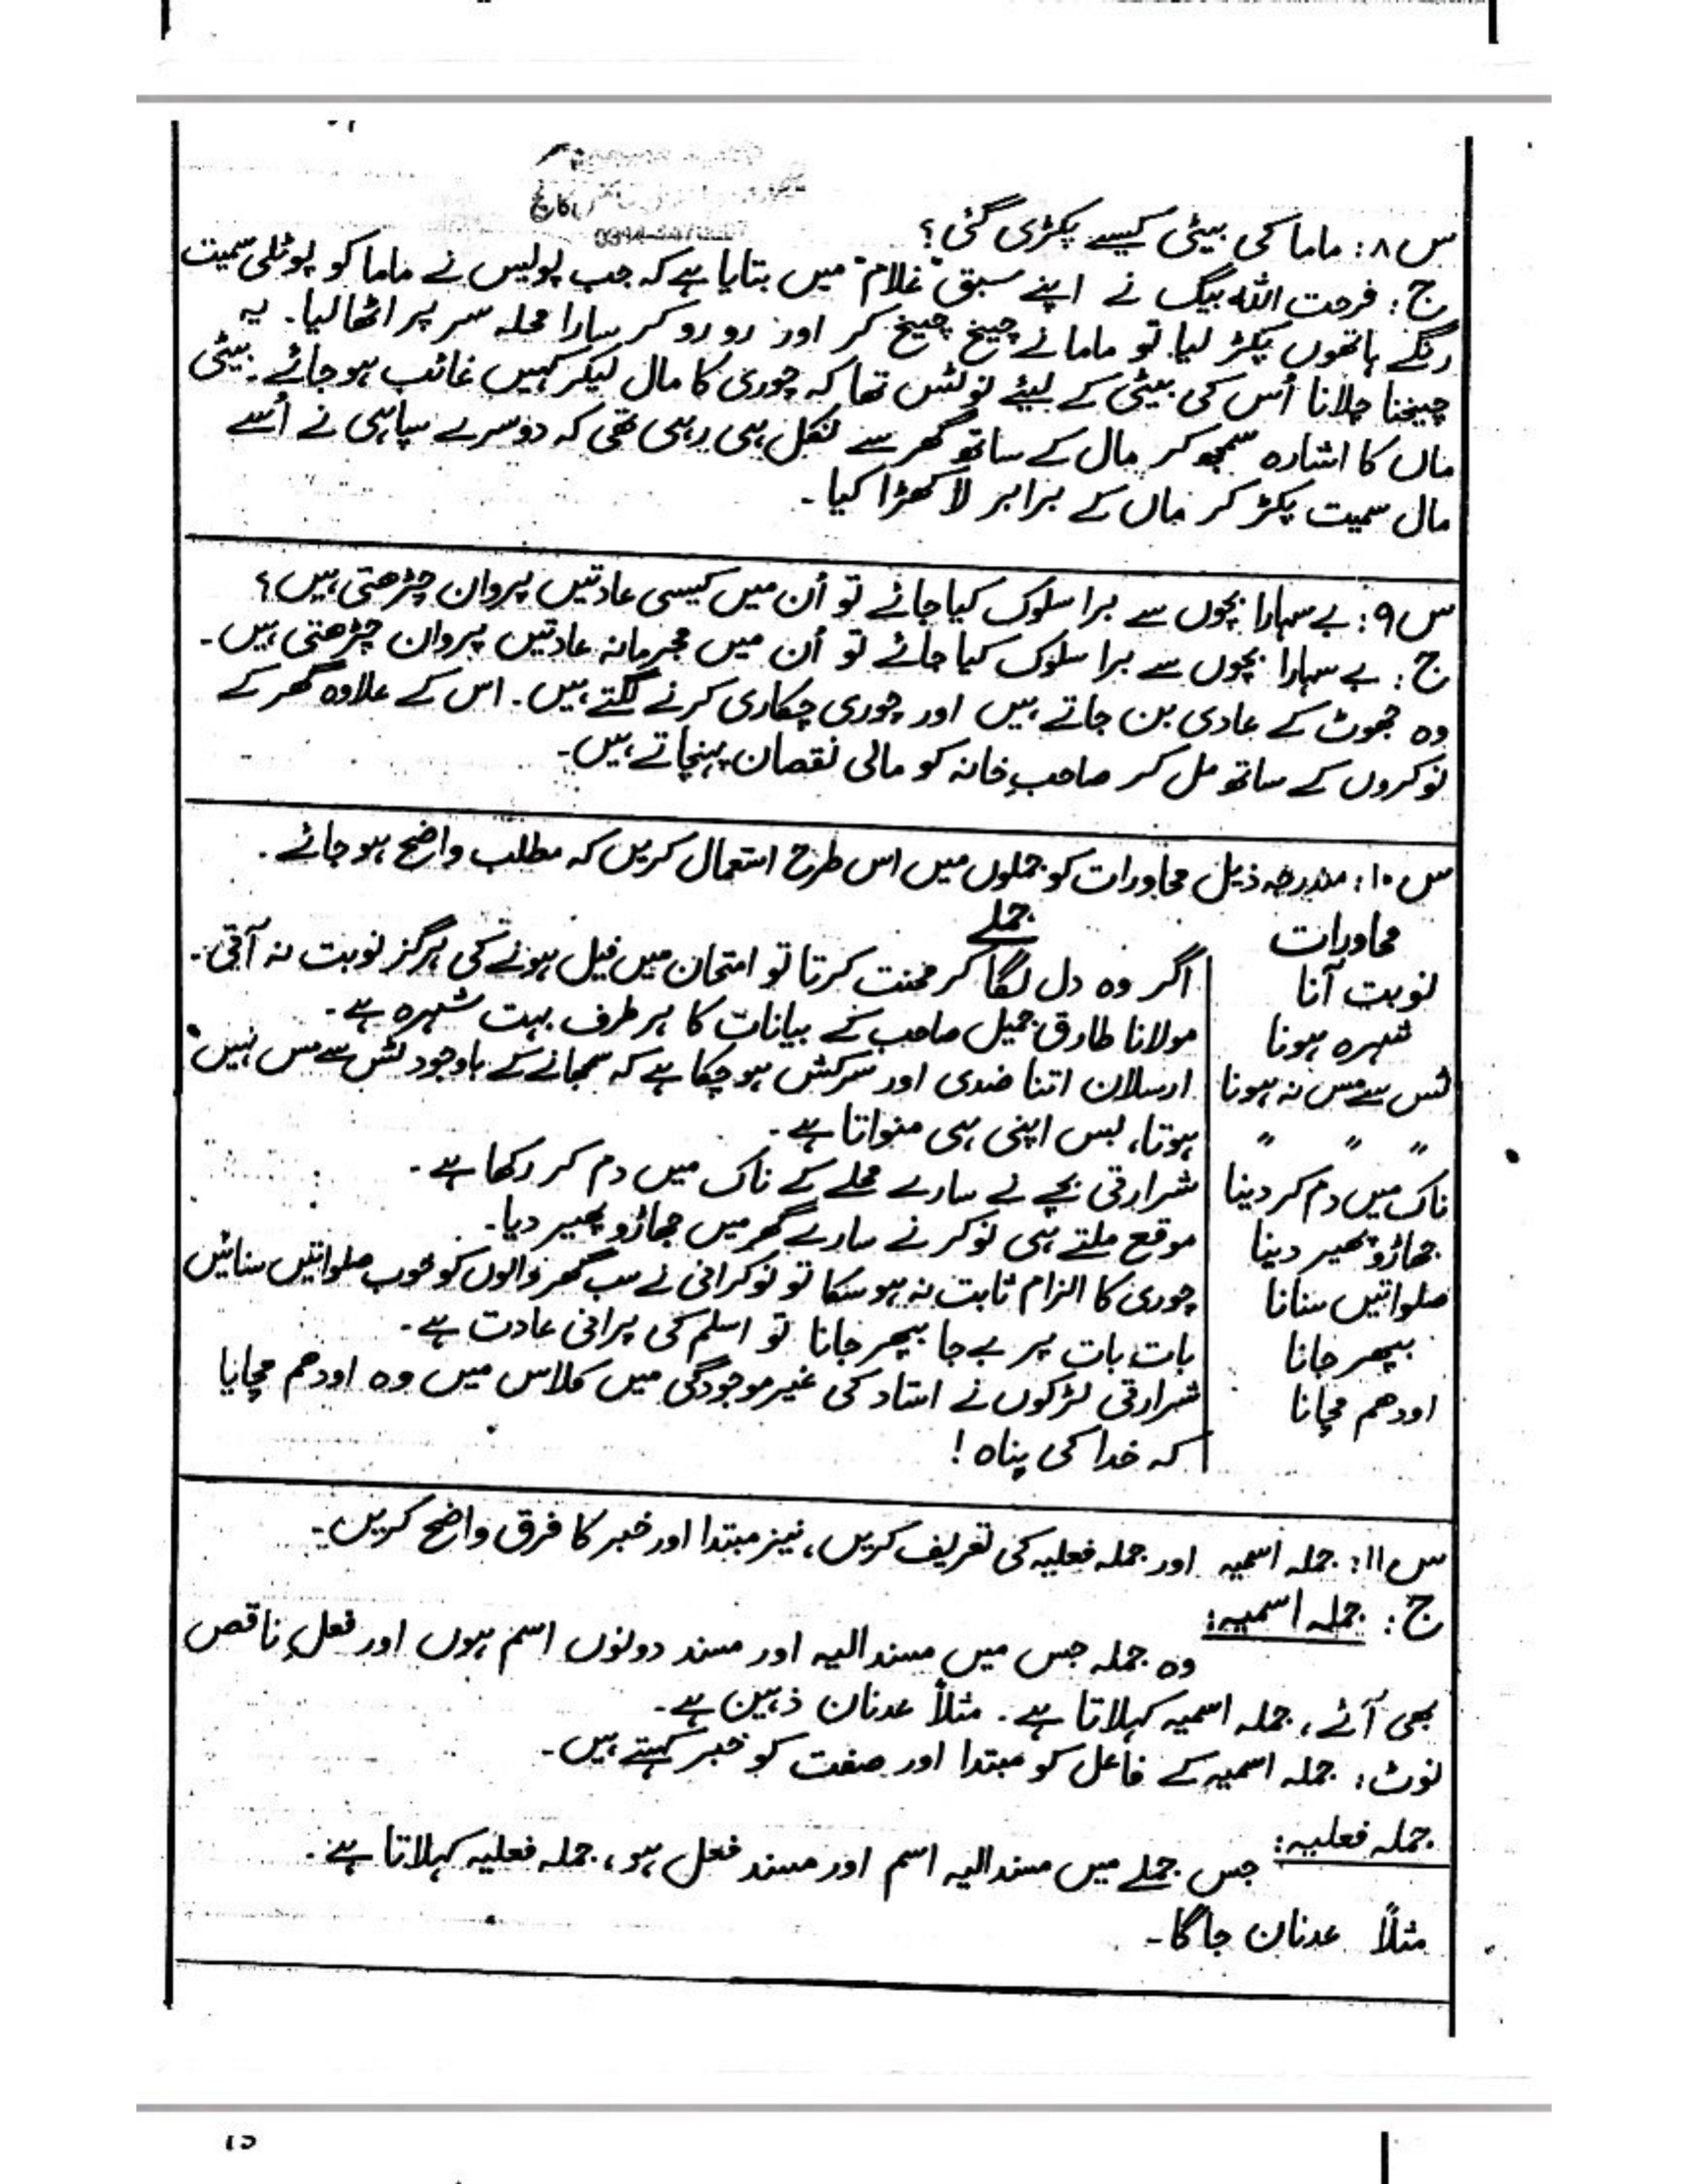 س ۸: ماما کی بیٹی کیسے پکڑی گئی؟
ج: فرحت اللہ بیگ نے اپنے سبق "غلام" میں بتایا ہے کہ جب پولیس نے ماما کو پوٹلی سمیت
رنگے ہاتھوں پکڑ لیا تو ماما نے چیخ چیخ کر اور رو رو کر سارا محلہ سر پر اٹھا لیا۔ یہ
چیخنا چلانا اُس کی بیٹی کے لیئے نوٹس تھا کہ چوری کا مال لیکر کہیں غائب ہو جائے۔ بیٹی
ماں کا اشارہ سمجھ کر مال کے ساتھ گھر سے نکل ہی رہی تھی کہ دوسرے سپاہی نے اُسے
مال سمیت پکڑ کر ماں کے برابر لا کھڑا کیا۔
س ۹: بے سہارا بچوں سے برا سلوک کیا جائے تو اُن میں کیسی عادتیں پروان چڑھتی ہیں؟
ج: بے سہارا بچوں سے برا سلوک کیا جائے تو اُن میں مجرمانہ عادتیں پروان چڑھتی ہیں۔
وہ جھوٹ کے عادی بن جاتے ہیں اور چوری چکاری کرنے لگتے ہیں۔ اس کے علاوہ گھر کے
نوکروں کے ساتھ مل کر صاحبِ خانہ کو مالی نقصان پہنچاتے ہیں۔
س ۱۰: مندرجہ ذیل محاورات کو جملوں میں اس طرح استعمال کریں کہ مطلب واضح ہو جائے۔
محاورات جملے
نوبت آنا اگر وہ دل لگا کر محنت کرتا تو امتحان میں فیل ہونے کی ہرگز نوبت نہ آتی۔
شہرہ ہونا مولانا طارق جمیل صاحب کے بیانات کا ہر طرف بہت شہرہ ہے۔
ٹس سے مس نہ ہونا ارسلان اتنا ضدی اور سرکش ہو چکا ہے کہ سمجھانے کے باوجود ٹس سے مس نہیں
" " " ہوتا، بس اپنی ہی منواتا ہے۔
ناک میں دم کر دینا شرارتی بچے نے سارے محلے کے ناک میں دم کر رکھا ہے۔
جھاڑو پھیر دینا موقع ملتے ہی نوکر نے سارے گھر میں جھاڑو پھیر دیا۔
صلواتیں سنانا چوری کا الزام ثابت نہ ہو سکا تو نوکرانی نے سب گھر والوں کو خوب صلواتیں سنائیں
بپھر جانا بات بات پر بے جا بپھر جانا تو اسلم کی پرانی عادت ہے۔
اودھم مچانا شرارتی لڑکوں نے استاد کی غیر موجودگی میں کلاس میں وہ اودھم مچایا
کہ خدا کی پناہ!
س ۱۱: جملہ اسمیہ اور جملہ فعلیہ کی تعریف کریں، نیز مبتدا اور خبر کا فرق واضح کریں۔
ج: جملہ اسمیہ:
وہ جملہ جس میں مسند الیہ اور مسند دونوں اسم ہوں اور فعلِ ناقص
بھی آئے، جملہ اسمیہ کہلاتا ہے۔ مثلاً عدنان ذہین ہے۔
نوٹ: جملہ اسمیہ کے فاعل کو مبتدا اور صفت کو خبر کہتے ہیں۔
جملہ فعلیہ: جس جملے میں مسند الیہ اسم اور مسند فعل ہو، جملہ فعلیہ کہلاتا ہے۔
مثلاً عدنان جاگا۔